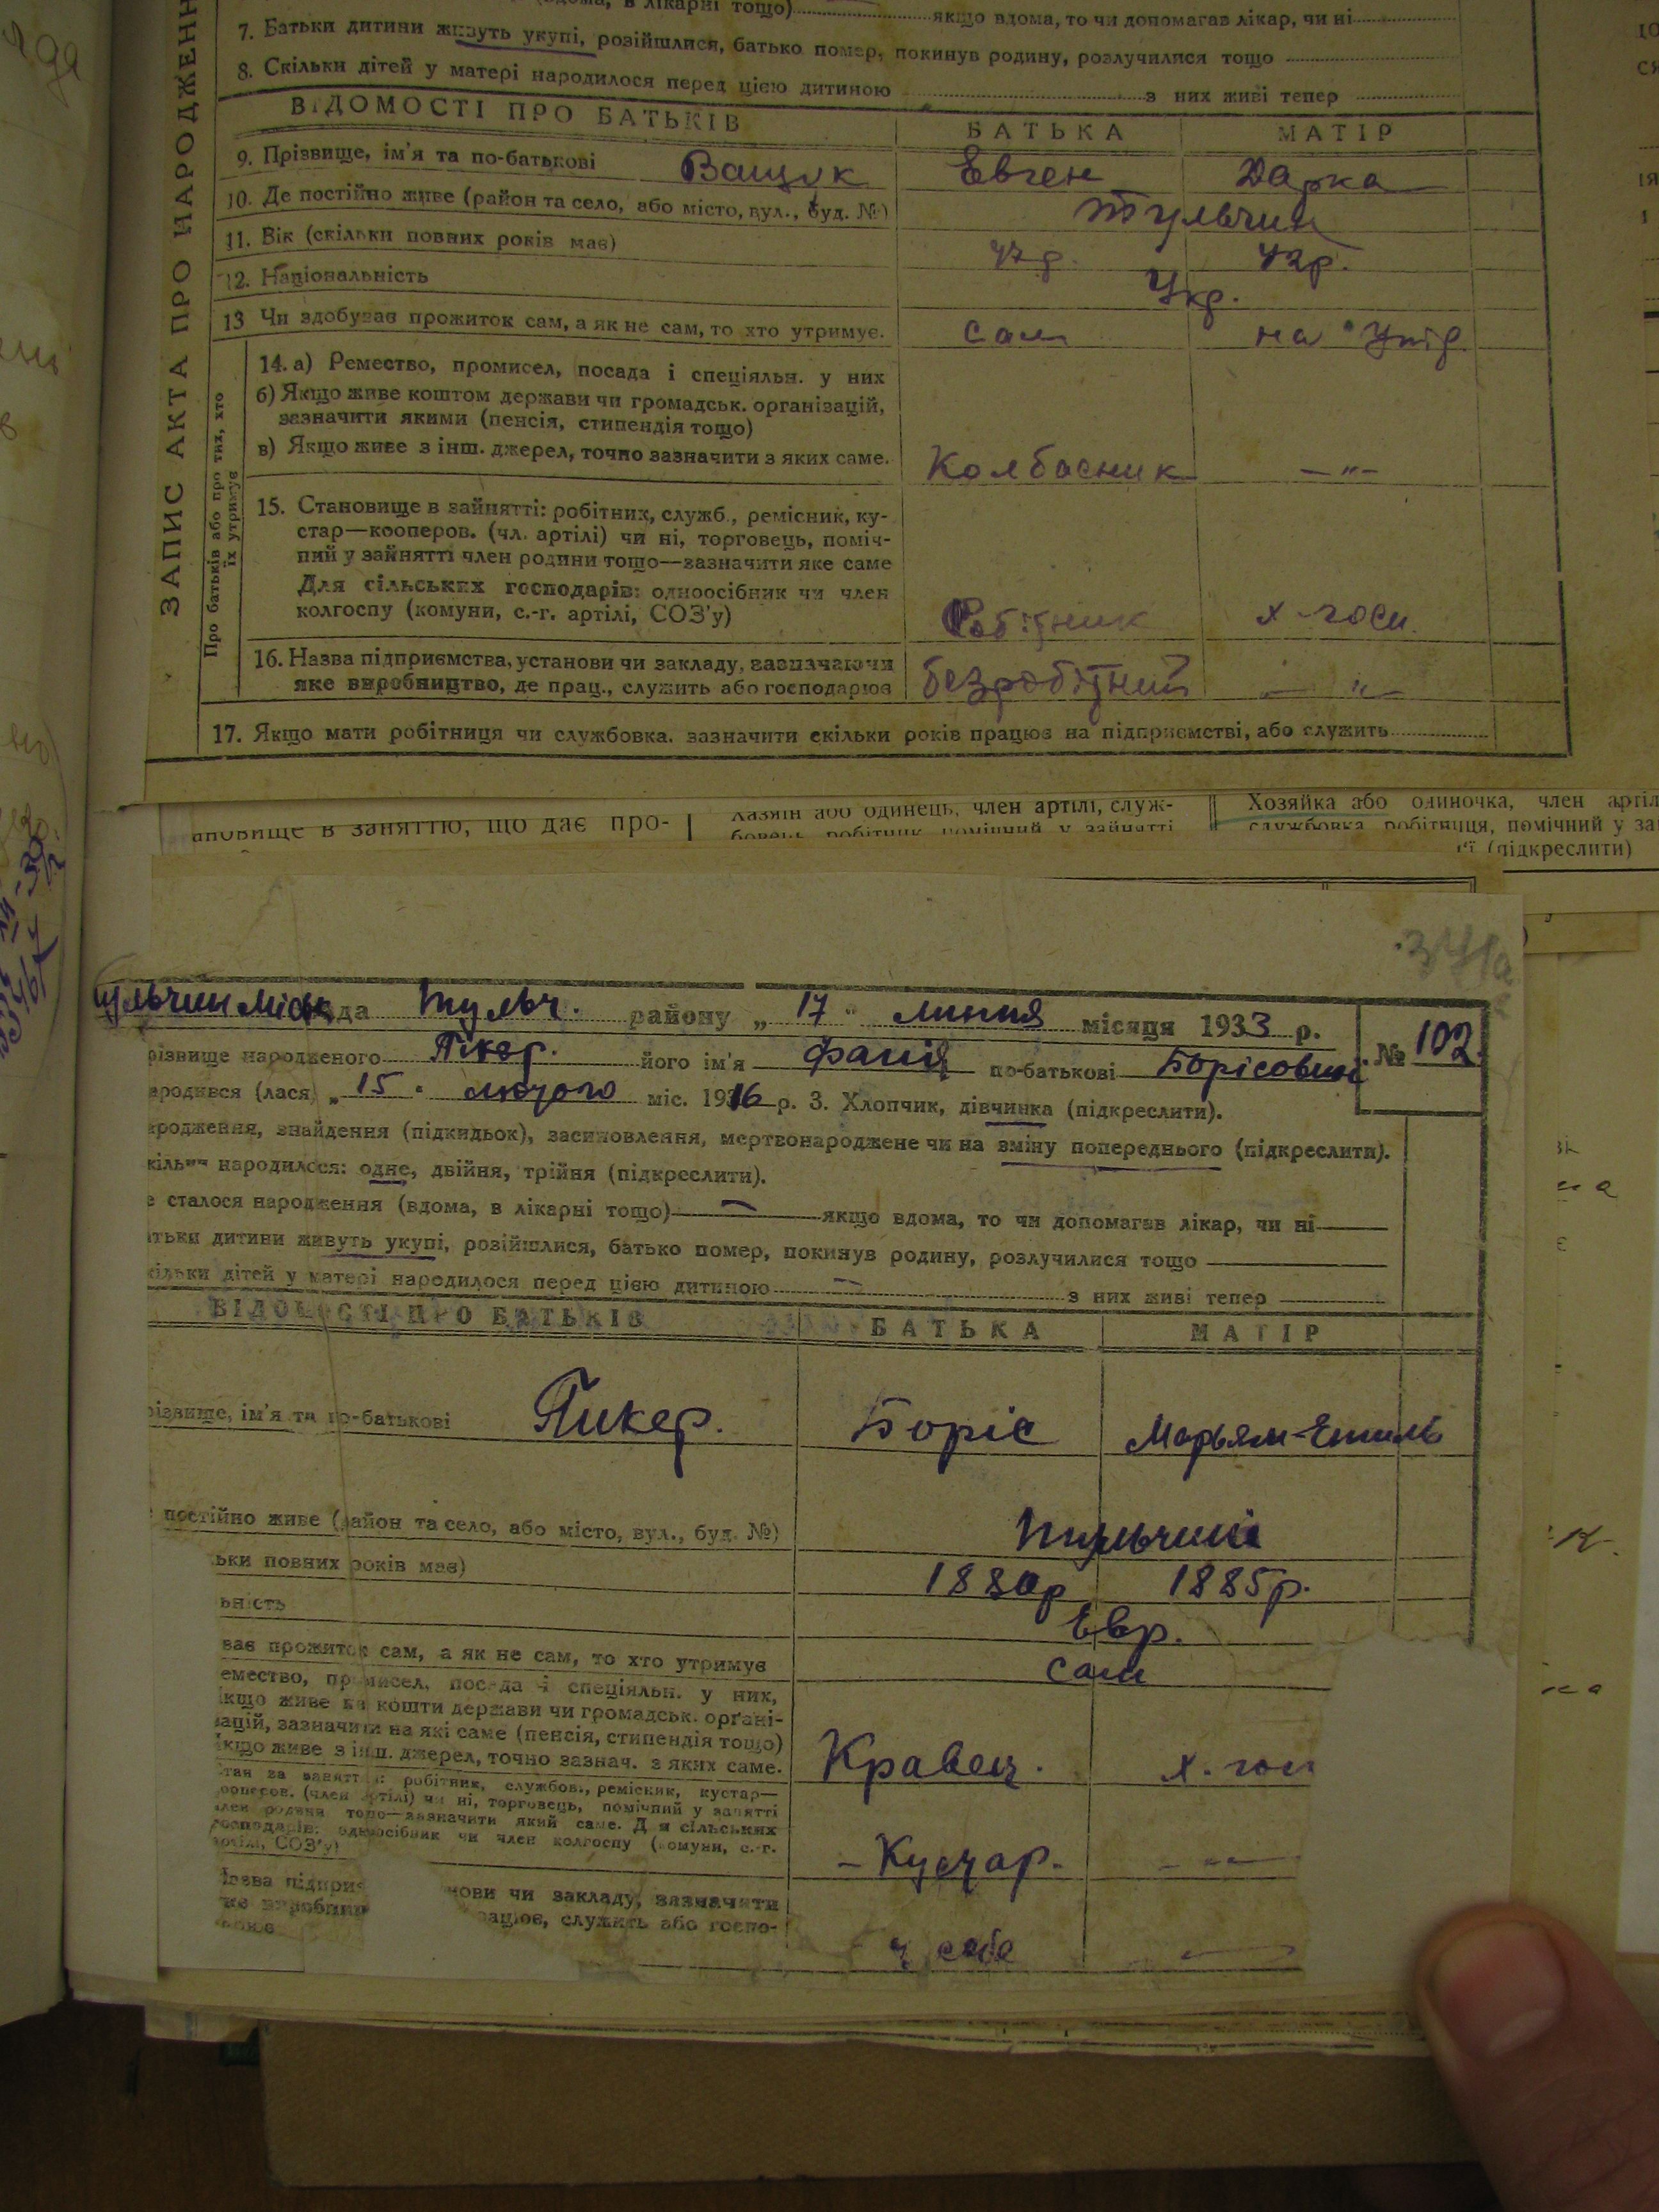 ЗАПИС АКТА ПРО НАРОДЖЕНН
якщо вдома, то чи допомагав лікар, чи ні
7. Батьки дитини живуть укупі, розійшлися, батько помер, покинув родину, розлучилися тощо
8. Скільки дітей у матері народилося перед цією дитиною з них живі тепер
ВІДОМОСТІ ПРО БАТЬКІВ БАТЬКА МАТІР
9. Прізвище, ім'я та по-батькові Ващук Евген Дарка
10. Де постійно живе (район та село, або місто, вул., буд. №) Тульчин
11. Вік (скільки повних років має) 42р.
12. Національність Укр.
13 Чи здобував прожиток сам, а як не сам, то хто утримує. сам на
Про батьків або про тих, хто їх утримує
14. а) Ремество, промисел, посада і спеціяльн. у них
б) Якщо живе коштом держави чи громадськ. організацій,
зазначити якими (пенсія, стипендія тощо)
в) Якщо живе з інш. джерел, точно зазначити з яких саме. Колбасник —„—
15. Становище в зайнятті: робітник, служб., ремісник, ку-
стар—кооперов. (чл. артілі) чи ні, торговець, поміч-
ний у зайнятті член родини тощо—зазначити яке саме
Для сільських господарів: одноосібник чи член
колгоспу (комуни, с.-г. артілі, СОЗ'у) Робітник х-госп.
16. Назва підприємства, установи чи закладу, зазначаючи
яке виробництво, де прац., служить або господарює безробітний — „ —
17. Якщо мати робітниця чи службовка, зазначити скільки років працює на підприємстві, або служить
ановище в заняттю, що дає про-
хазяїн або одинець, член артілі, служ-
бовець, робітник, помічний у зайнятті
Хозяйка або одиночка, член артіл
службовка, робітниця, помічний у за
(підкреслити)
341а
ульчин міськ да Тульч. району „ 17 " липня місяця 1933 р. № 102
різвище народженого Пікер. його ім'я Фаня по-батькові Борісовна
ародився (лася) „ 15 " лютого міс. 1916 р. 3. Хлопчик, дівчинка (підкреслити).
ародження, знайдення (підкидьок), засиновлення, мертвонароджене чи на зміну попереднього (підкреслити).
кільки народилося: одне, двійня, трійня (підкреслити).
е сталося народження (вдома, в лікарні тощо) — якщо вдома, то чи допомагав лікар, чи ні
атьки дитини живуть укупі, розійшлися, батько помер, покинув родину, розлучилися тощо
кільки дітей у матері народилося перед цією дитиною — з них живі тепер
ВІДОМОСТІ ПРО БАТЬКІВ БАТЬКА МАТІР
різвище, ім'я та по-батькові Пикер. Боріс Марьям-Етиль
постійно живе (район та село, або місто, вул., буд. №) Тульчин
ьки повних років має) 1880р 1885р.
ьність Евр.
вав прожиток сам, а як не сам, то хто утримує сам
емество, промисел, посада й спеціяльн. у них,
кщо живе на кошти держави чи громадськ. органі-
зацій, зазначити на які саме (пенсія, стипендія тощо)
кщо живе з інш. джерел, точно зазнач. з яких саме. Кравец. х. гос
стан за заняттям: робітник, службов., ремісник, кустар—
кооперов. (член артілі) чи ні, торговець, помічний у занятті
член родини тощо—зазначити який саме. Для сільських
господарів: одноосібник чи член колгоспу (комуни, с.-г.
артілі, СОЗ'у) – Кустар. – –
Назва підприє нови чи закладу, зазначити
яке виробниц рацює, служить або госпо-
у себе —